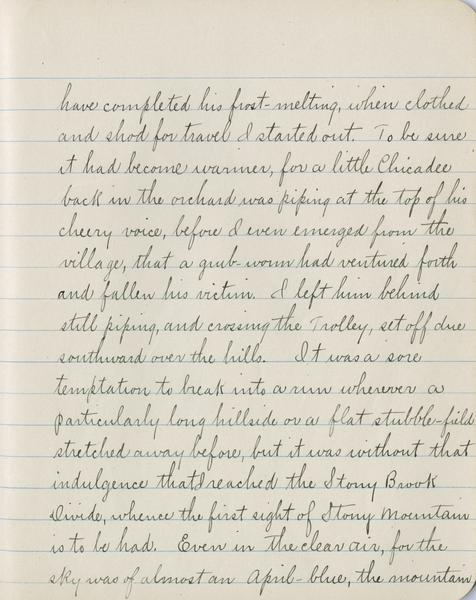 have completed his frost-melting, when clothed
and shod for travel I started out. To be sure
it had become warmer, for a little Chicadee
back in the orchard was piping at the top of his
cheery voice, before I even emerged from the
village, that a grub-worm had ventured forth
and fallen his victim. I left him behind
still piping, and crossing the Trolley, set off due
southward over the hills. It was a sore
temptation to break into a run wherever a
particularly long hillside or a flat stubble-field
stretched away before, but it was without that
indulgence that I reached the Stony Brook
Divide, whence the first sight of Stony Mountain
is to be had. Even in the clear air, for the
sky was of almost an April-blue, the mountain